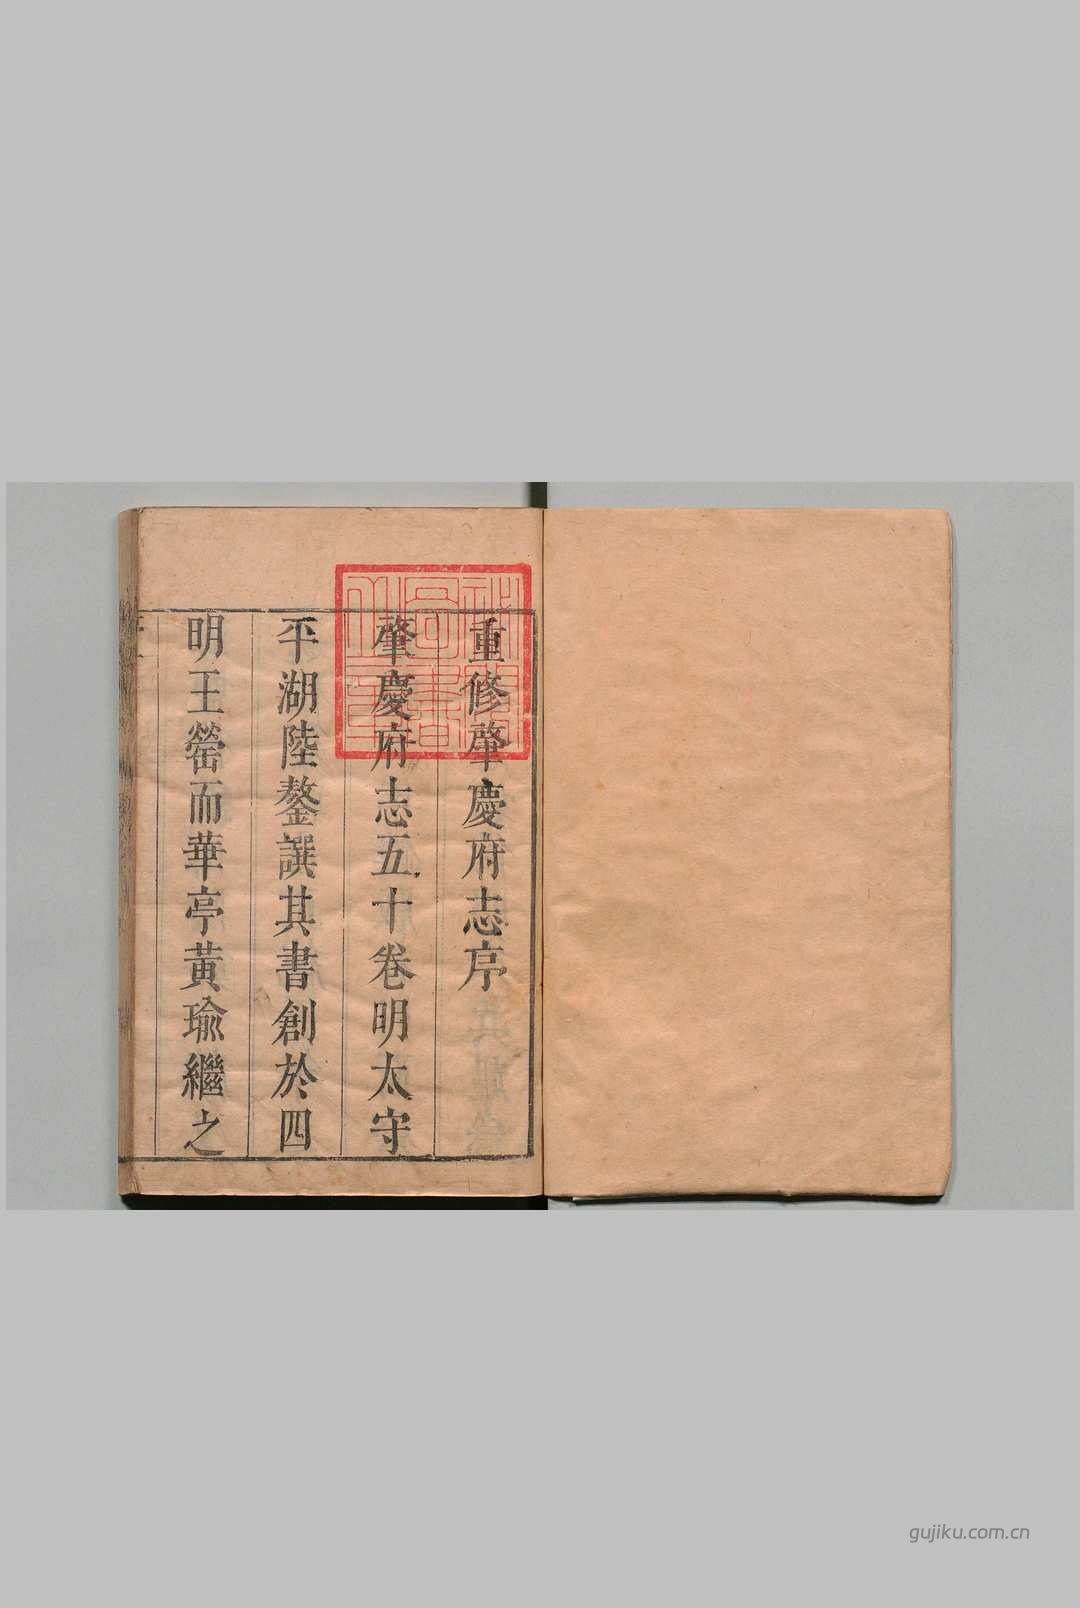 重修肇慶府志序
肇慶府志五十卷明太守
平湖陸鏊譔其書創於四
明王罃而華亭黃瑜繼之
gujiku.com.cn